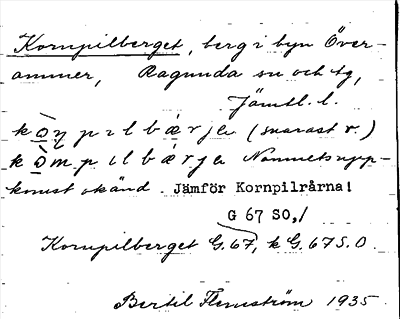 Kornpilberget, berg i byn Över-
ammer, Ragunda sn och tg,
Jämtl. l.
kòn̥pılbárjə (snarast v.)
kòmpılbárjə Namnets upp-
komst okänd. Jämför Kornpilrårna!
G 67 SO,/
Kornpilberget G. 67, k G. 67 S. O.
Bertil Flemström 1935.